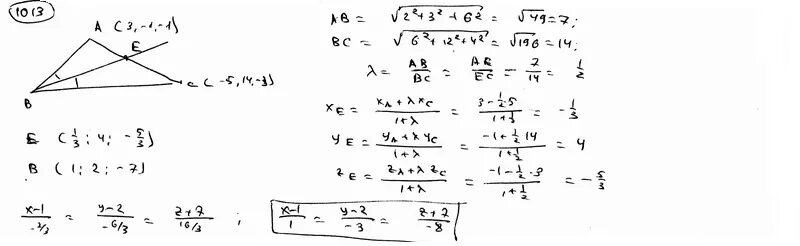 1013
A (3,-1,-1)
E
B
C (-5,14,-3)
E (1/3; 4; -5/3)
B (1; 2; -7)
AB = √(2²+3²+6²) = √49=7;
BC = √(6²+12²+4²) = √196=14;
λ = AB/BC = AE/EC = 7/14 = 1/2
x_E = (x_A+λx_C)/(1+λ) = (3-1/2·5)/(1+1/2) = -1/3
y_E = (y_A+λy_C)/(1+λ) = (-1+1/2·14)/(1+1/2) = 4
z_E = (z_A+λz_C)/(1+λ) = (-1-1/2·3)/(1+1/2) = -5/3
(x-1)/(-2/3) = (y-2)/(-6/3) = (z+7)/(16/3) ; (x-1)/1 = (y-2)/-3 = (z+7)/-8